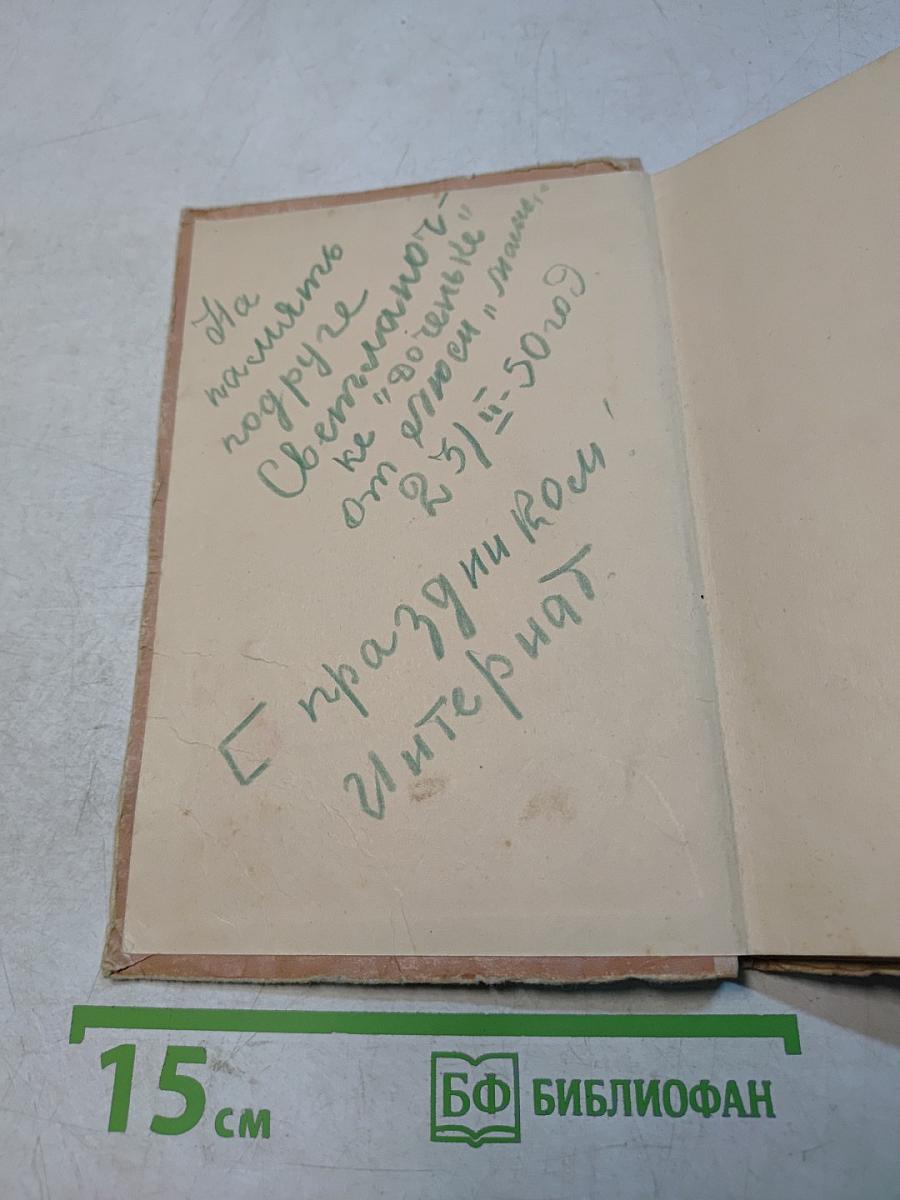 На
память
подруге
Светланоч-
ке "доченьке"
от Люси "мамы"
23/II-50 год
С праздником!
Интернат
15 см
БФ БИБЛИОФАН